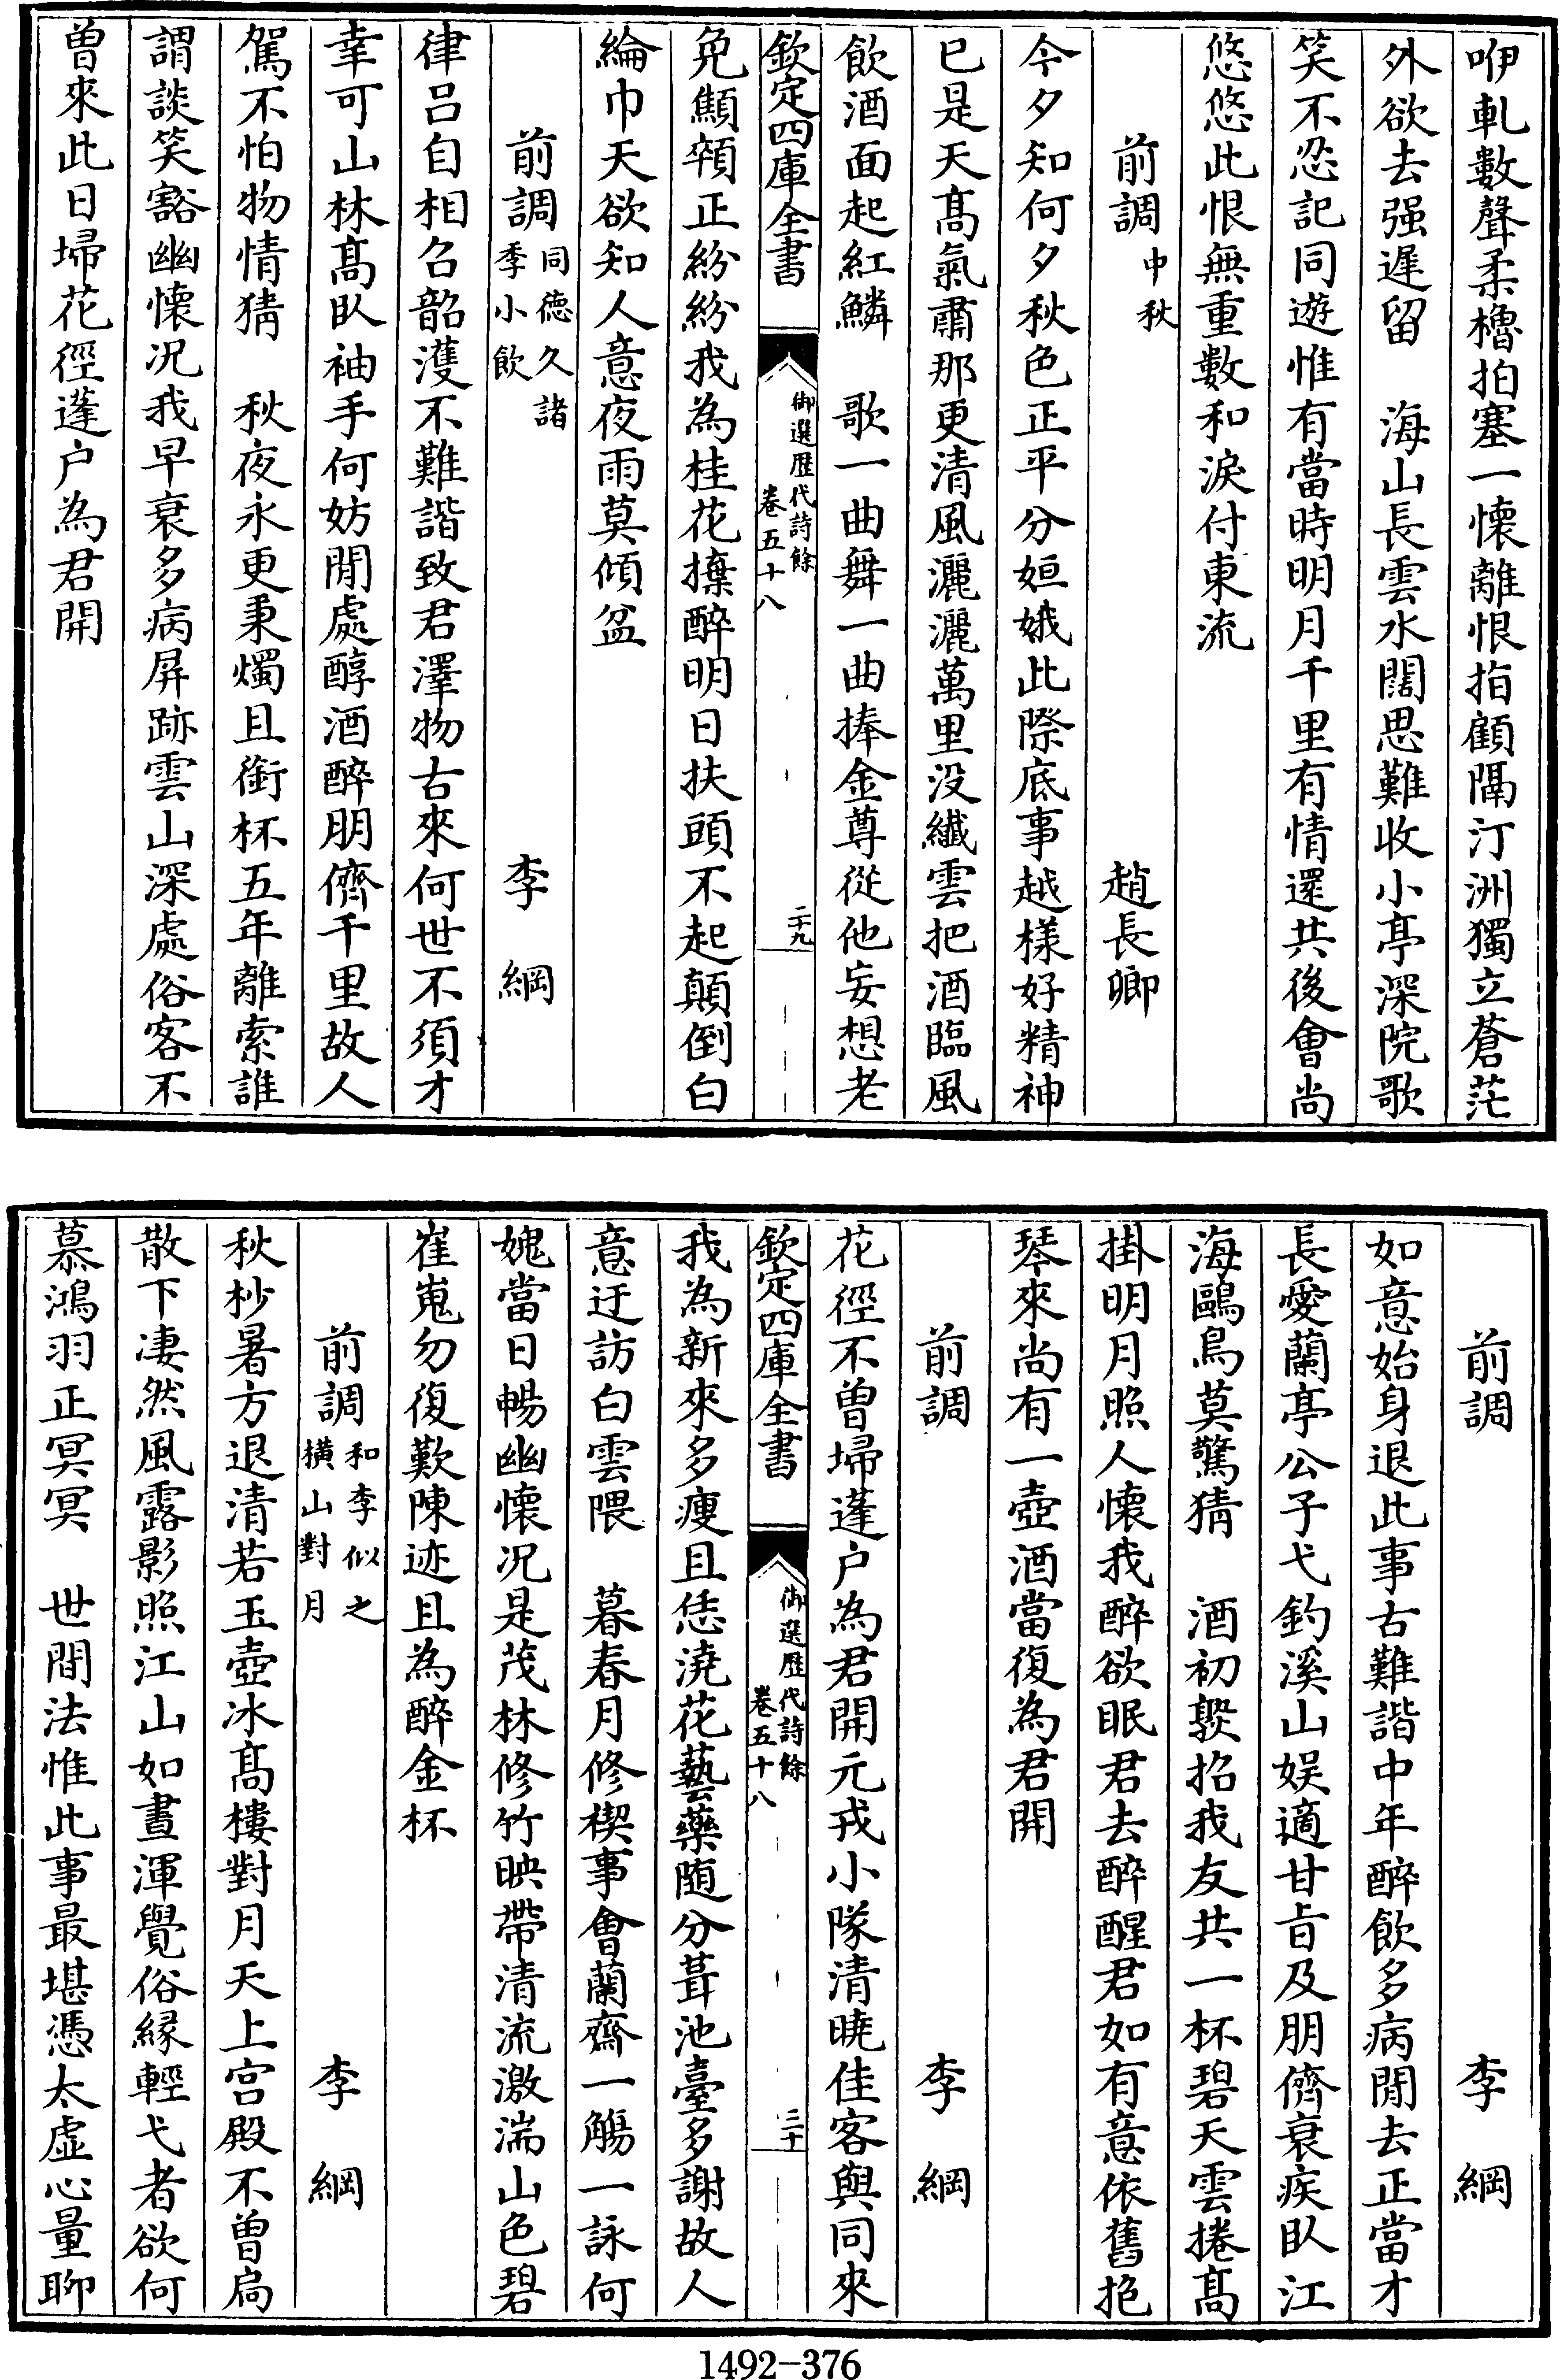 咿軋數聲柔櫓拍塞一懷離恨指顧隔汀洲獨立蒼茫
外欲去强遲留　海山長雲水闊思難收小亭深院歌
笑不忍記同遊惟有當時明月千里有情還共後會尚
悠悠此恨無重數和淚付東流
前調中秋　趙長卿
今夕知何夕秋色正平分姮娥此際底事越樣好精神
已是天髙氣肅那更清風灑灑萬里没纎雲把酒臨風
飲酒面起紅鱗　歌一曲舞一曲捧金尊從他妄想老
欽定四庫全書
御選歴代詩餘
卷五十八
二十九
免顦顇正紛紛我為桂花𢬵醉明日扶頭不起顛倒白
綸巾天欲知人意夜雨莫傾盆
前調同徳久諸季小飲　李綱
律吕自相召韶濩不難諧致君澤物古來何世不須才
幸可山林髙卧袖手何妨閒處醇酒醉朋儕千里故人
駕不怕物情猜　秋夜永更秉燭且銜杯五年離索誰
謂談笑豁幽懐况我早衰多病屏跡雲山深處俗客不
曽來此日埽花徑蓬户為君開
前調　李綱
如意始身退此事古難諧中年醉飲多病閒去正當才
長愛蘭亭公子弋釣溪山娱適甘㫖及朋儕衰疾卧江
海鷗鳥莫驚猜　酒初熟招我友共一杯碧天雲捲髙
掛明月照人懐我醉欲眠君去醉醒君如有意依舊抱
琴來尚有一壺酒當復為君開
前調　李綱
花徑不曽埽蓬户為君開元戎小隊清曉佳客與同來
欽定四庫全書
御選歴代詩餘
卷五十八
三十
我為新來多瘦且恁澆花藝藥随分葺池臺多謝故人
意迂訪白雲隈　暮春月修禊事會蘭齋一觴一詠何
媿當日暢幽懐况是茂林修竹映帶清流激湍山色碧
崔嵬勿復歎陳迹且為醉金杯
前調和李似之横山對月　李綱
秋杪暑方退清若玉壺冰髙樓對月天上宫殿不曽扃
散下凄然風露影照江山如晝渾覺俗縁輕弋者欲何
慕鴻羽正冥冥　世間法惟此事最堪憑太虚心量聊
1492-376